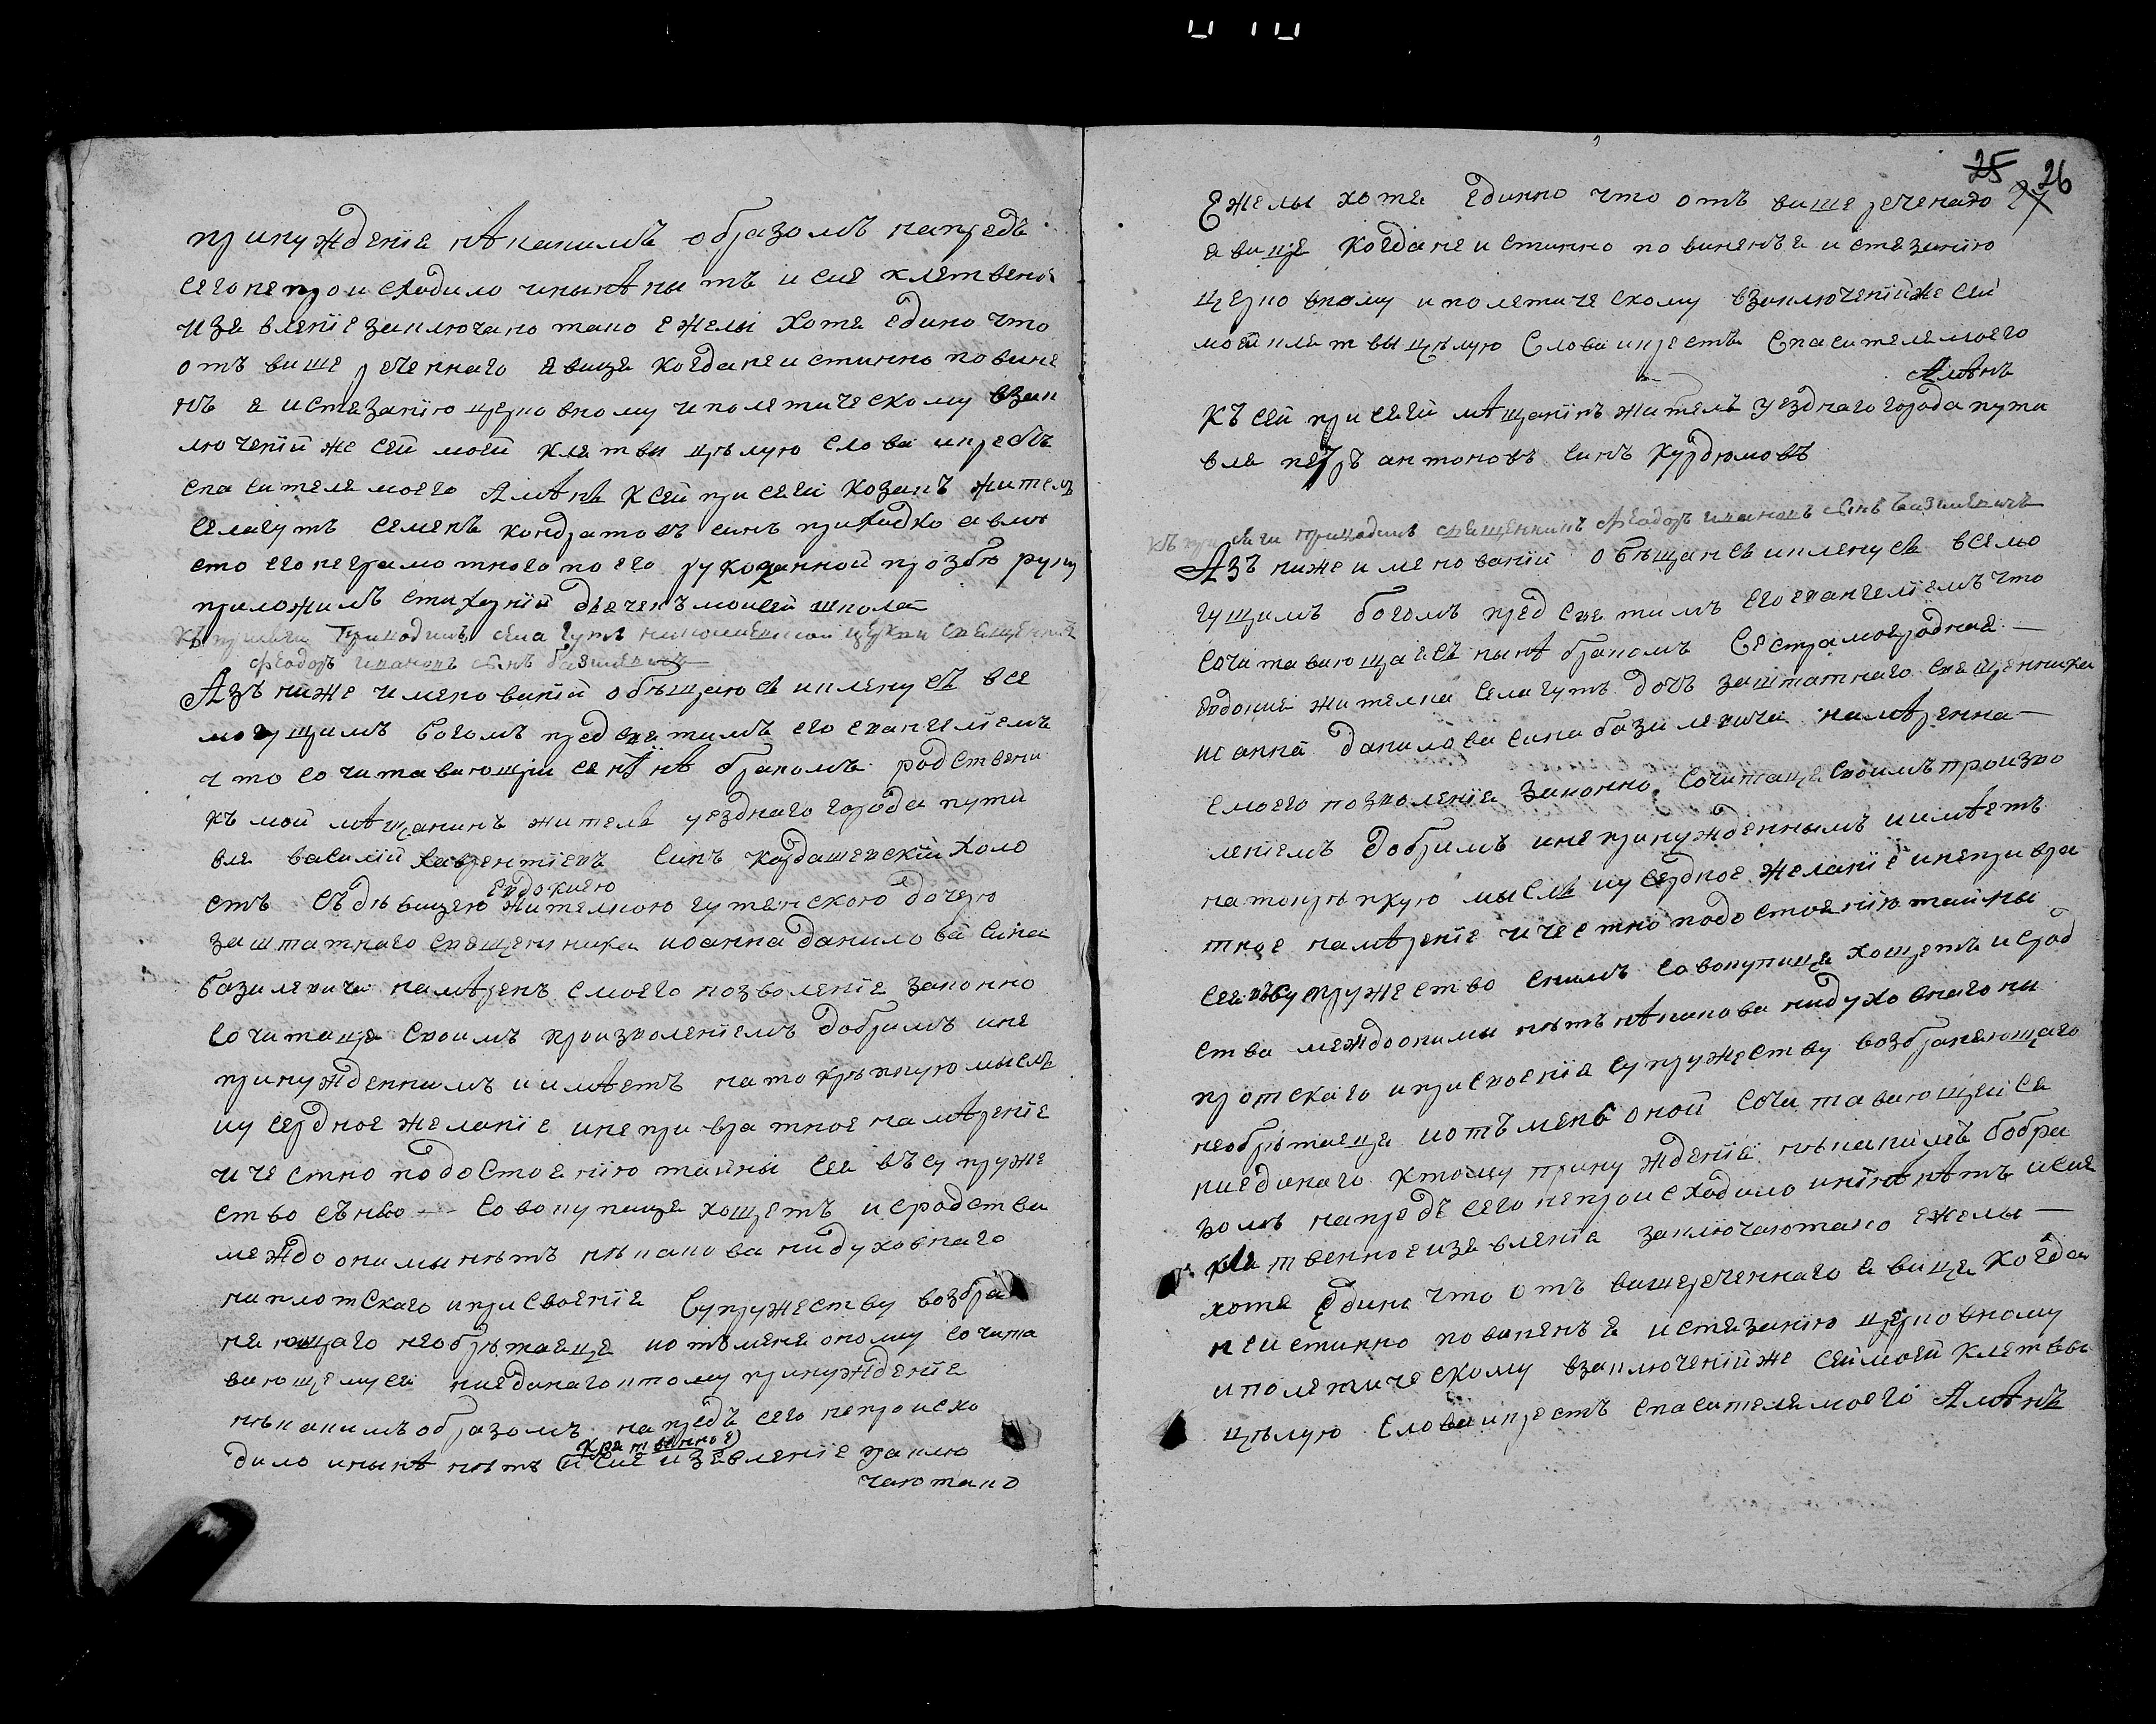 принуждение нѣкаким образомъ напредъ
сего непроисходило инынѣ нытъ и сие клятвеное
изявленіе заключаю тако ежели хотя едино что
отъ више реченнаго явица когда неистинно повине
нъ я истязанію церковному и полятическому взак
лючении же сей моей клятви цѣлую слова икрестъ
спасителя моего Амѣнь К сей присяги козакъ житель
села гутъ семенъ кондратовъ синъ приходко авмѣ
сто его неграмотного по его рукоданной прозбѣ руку
приложилъ стихурній дяченъ моисей шполай
Къ присяги приводилъ села гутъ николаевской церкви священникъ
феодоръ ивановъ синъ базилевичъ
Азъ ниже имянований обѣщаюсь икленусь все
могущимъ богомъ предсвятимъ его евангелиемъ
что сочитавающійся нинѣ бракомъ родствени
къ мой мѣщанинъ житель уезднаго города пути
вля василий лаврентіевъ синъ кардашевскій холо
стъ съдѣвицею жителкою гутянскою дочерю
евдокиею
заштатнаго священника иоанна данилова сина
базилевича намѣренъ смоего позволения законно
сочитаця своимъ произволениемъ добримъ ине
принужденнимъ иимѣетъ натокрѣпкую мысль
иусердное желание инепривратное намѣрение
ичестно подостоянію тайни сея въсупруже
ство сънею — совокупица хощетъ исродства
междо оними нѣтъ нѣкакова нидуховнаго
ниплотскаго иприсвоения супружеству возбра
няющаго необрѣтаеця иотъмене оному сочита
вающемуся ниединаго ктому принуждение
нѣкакимъ образомъ напредъ сего непроисхо
дило инынѣ нѣтъ и сие изявление заклю
клятвенное
чаю тако
25 26
27
Ежелы хотя единно что отъ више реченаго
явица когда неистинно повиненъ я истязанію
церковному иполятическому взаключенійже сей
моей клятвы цѣлую слова икрестъ спасителя моего
Амѣнь
Къ сей присяги мѣщанинъ житель уезднаго города пути
вля петръ антоновъ синъ курдюмовъ
Къ присяги приводилъ священникъ феодоръ ивановъ синъ базилевичъ
Азъ ниже именований обѣщаюсь икленусь всемо
гущимъ богомъ пред святимъ его евангелиемъ что
сочитавающаясь нинѣ бракомъ сестра моя родная —
евдокия жителка села гутъ дочъ заштатнаго священника
иоанна данилова сина базилевича намѣренна —
смоего позволения законно сочитаця своимъ произво
лениемъ добримъ инепринужденнымъ иимѣетъ
натокрѣпкую мысль иусердное желание инепривра
тное намѣрение ичестно подостоянію тайны
сея въсупружество снимъ совокупица хощетъ исрод
ства междо оними нѣтъ нѣкакова нидуховнаго ни
плотскаго иприсвоения супружеству возбраняющаго
необрѣтаеця иотъмене оной сочитавающейся
ниединаго ктому принуждения нѣкакимъ бобра
зомъ напредъ сего непроисходило инінѣ нѣтъ исие
клятвенное изявление заключаю тако ежелы —
хотя едино что отъ вишереченнаго явица когда
неистинно повиненъ я истязанію церковному
иполятическому взаключенійже сей моей клятвы
цѣлую слова икрестъ спасителя моего Амѣнь